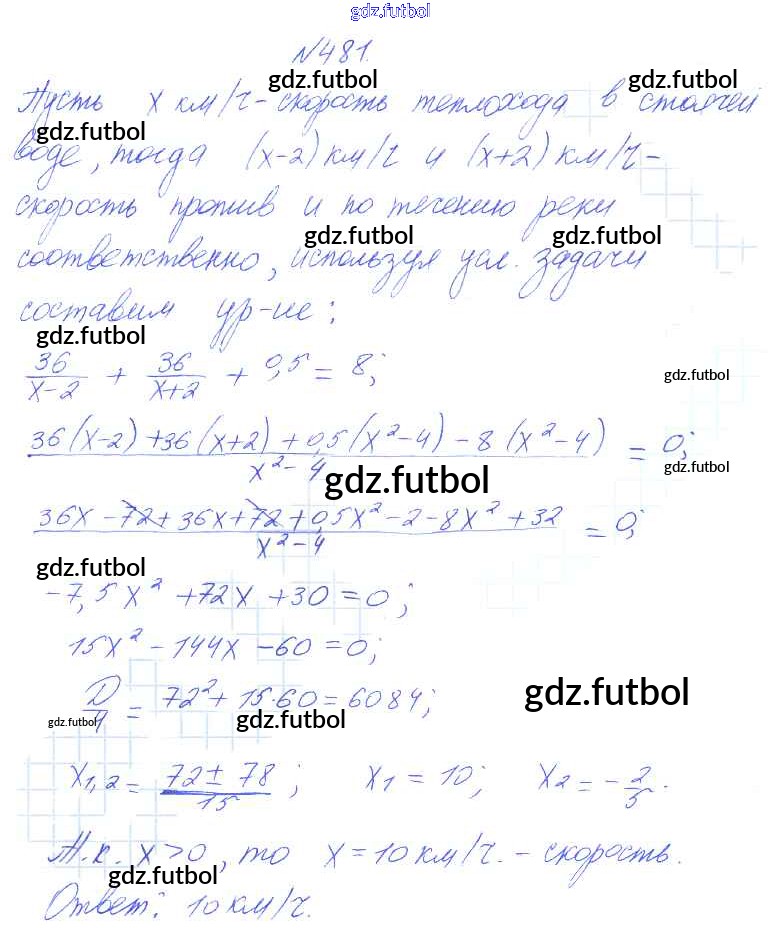 gdz.futbol
№481.
gdz.futbol gdz.futbol
Пусть x км/ч - скорость теплохода в стоячей
gdz.futbol
воде, тогда (x-2) км/ч и (x+2) км/ч -
скорость против и по течению реки
gdz.futbol gdz.futbol
соответственно, используя усл. задачи
составим ур-ие:
gdz.futbol
36/(x-2) + 36/(x+2) + 0,5 = 8;
gdz.futbol
(36(x-2) + 36(x+2) + 0,5(x²-4) - 8(x²-4))/(x²-4) = 0;
gdz.futbol
gdz.futbol
(36x - 72 + 36x + 72 + 0,5x² - 2 - 8x² + 32)/(x²-4) = 0;
gdz.futbol
-7,5x² + 72x + 30 = 0;
15x² - 144x - 60 = 0;
gdz.futbol
D/4 = 72² + 15·60 = 6084;
gdz.futbol gdz.futbol
x₁,₂ = (72 ± 78)/15; x₁ = 10; x₂ = -2/5.
Т.к. x > 0, то x = 10 км/ч. - скорость.
gdz.futbol
Ответ: 10 км/ч.